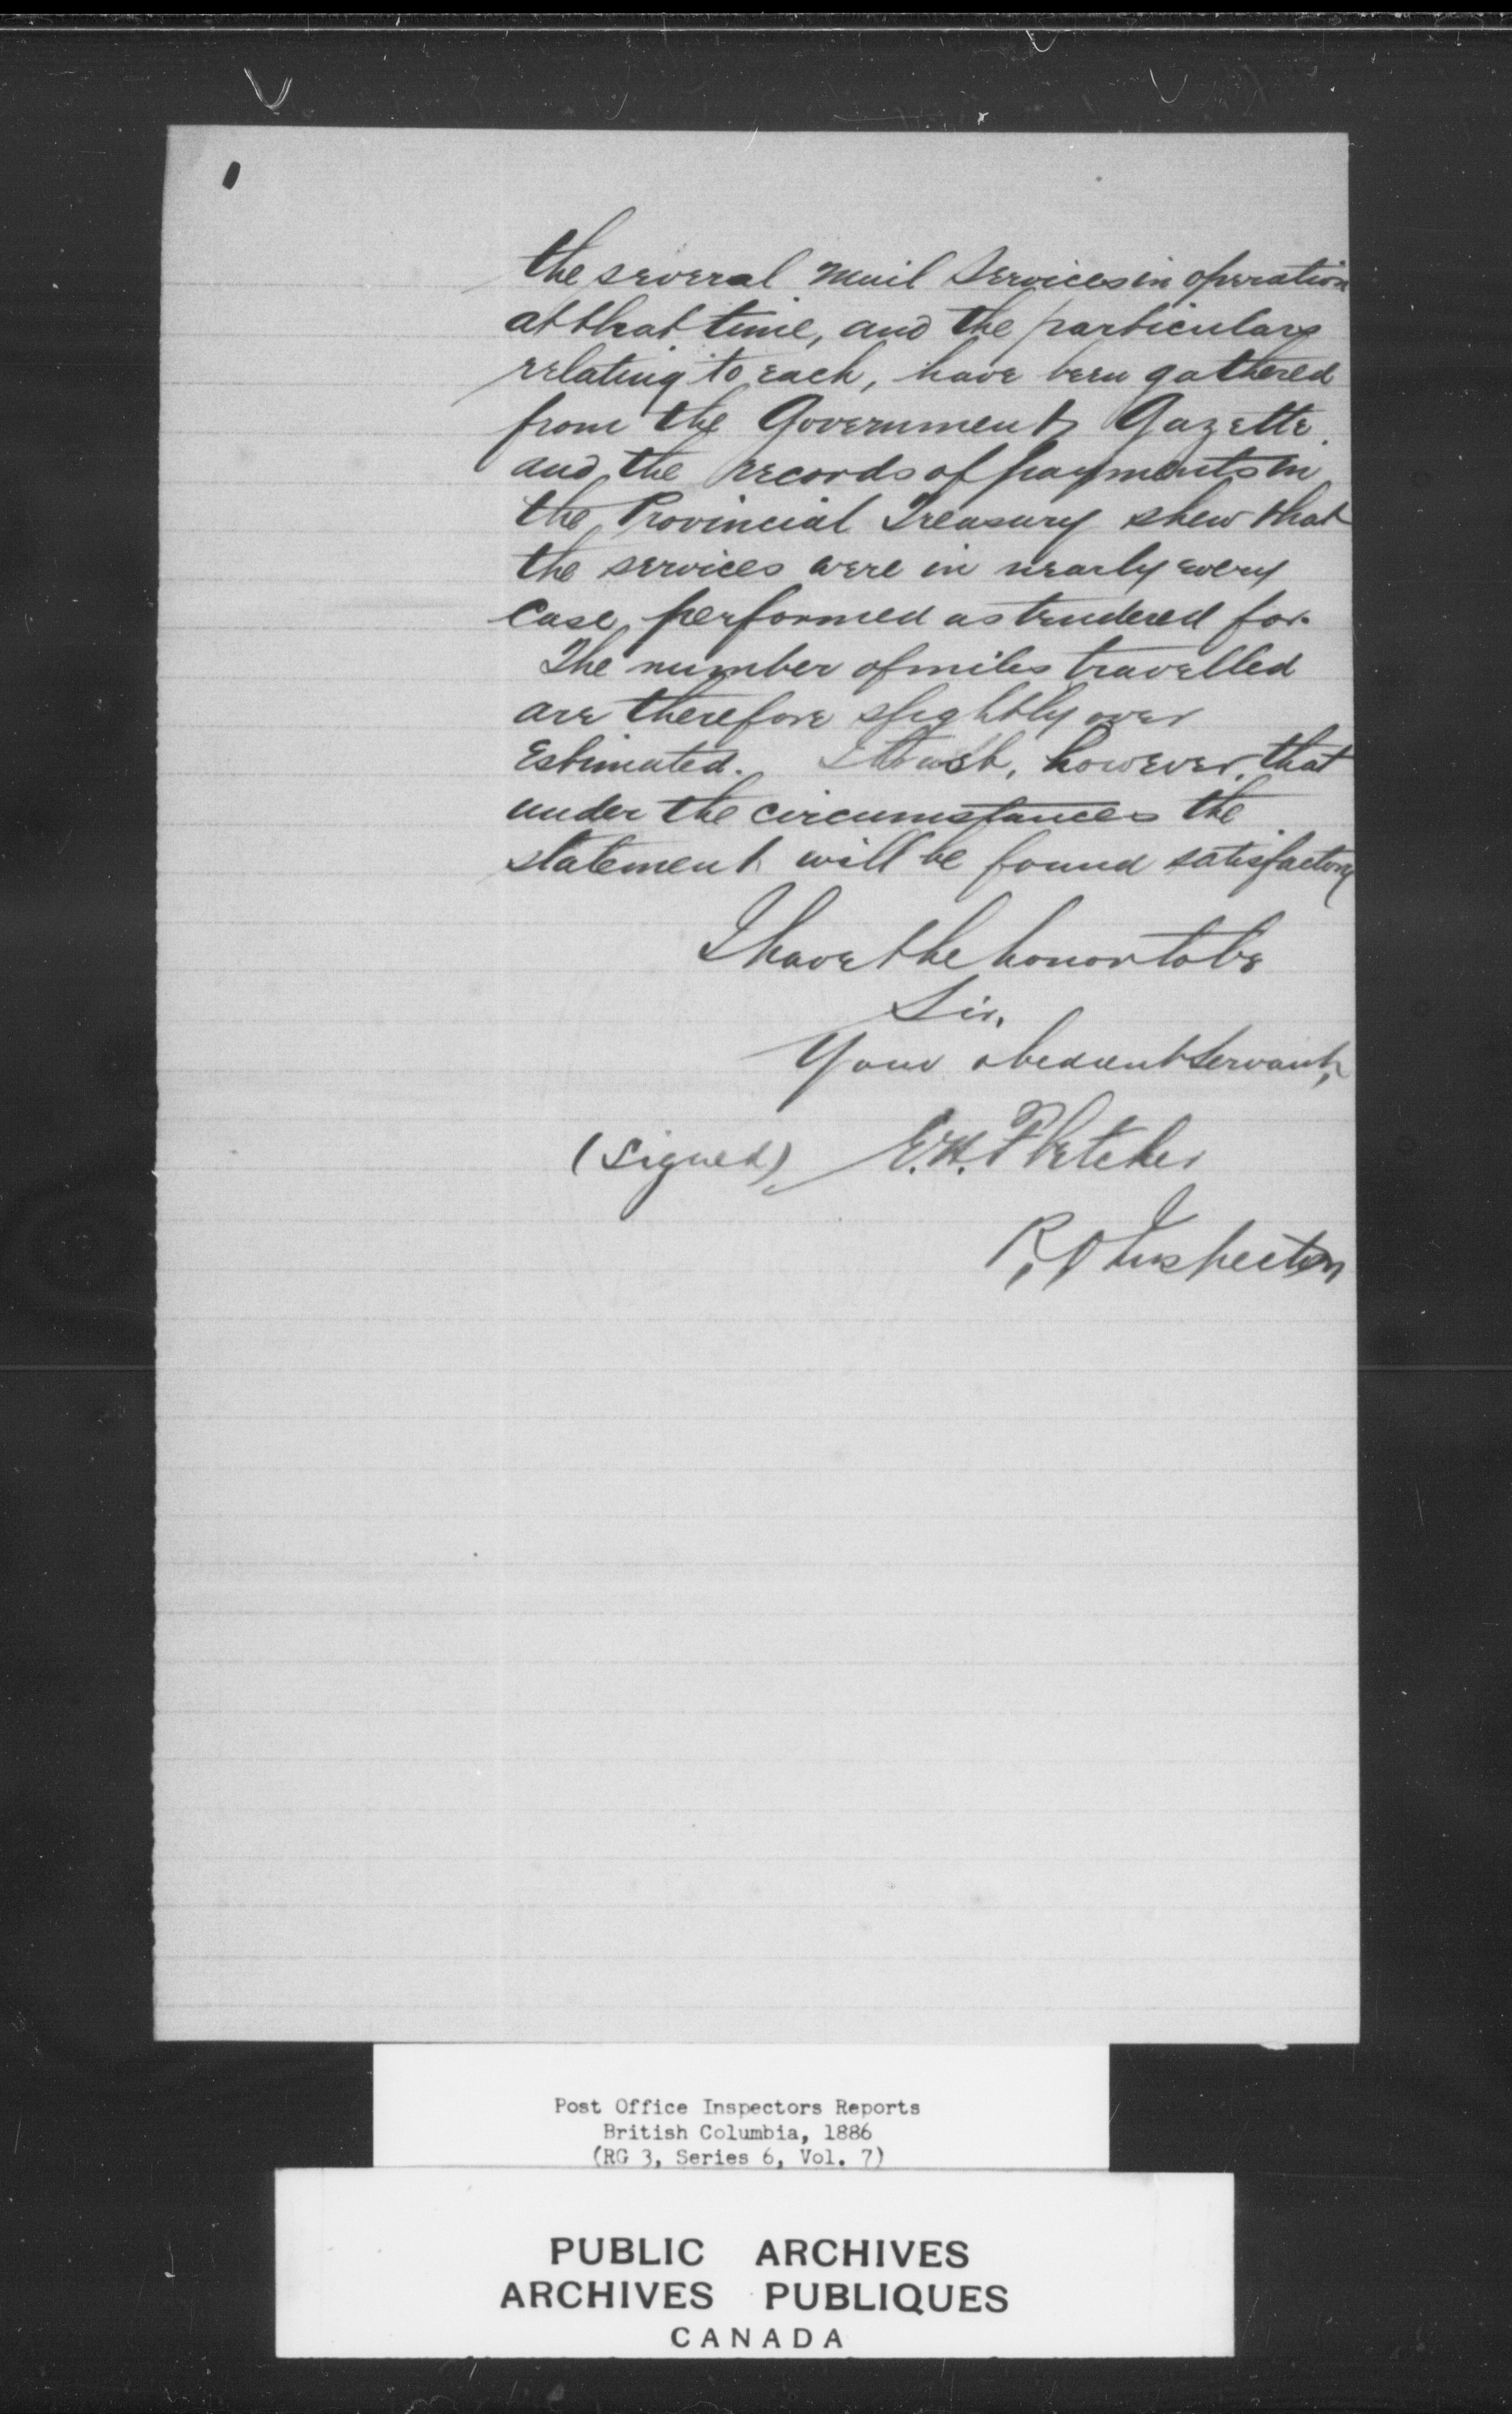 the several Mail Services in operation
at that time, and the particulars
relating to each, have been gathered
from the Government Gazette.
and the records of payments in
the Provincial Treasury shew that
the services were in nearly every
case, performed as tendered for.
The number of miles travelled
are therefore slightly over
Estimated. I trust, however, that
under the circumstances the
statement will be found satisfactory
I have the honor to be
Sir,
Your obedient Servant,
(Signed) E.H. Fletcher
P.O Inspector
Post Office Inspectors Reports
British Columbia, 1886
(RG 3, Series 6, Vol. 7)
PUBLIC ARCHIVES
ARCHIVES PUBLIQUES
CANADA